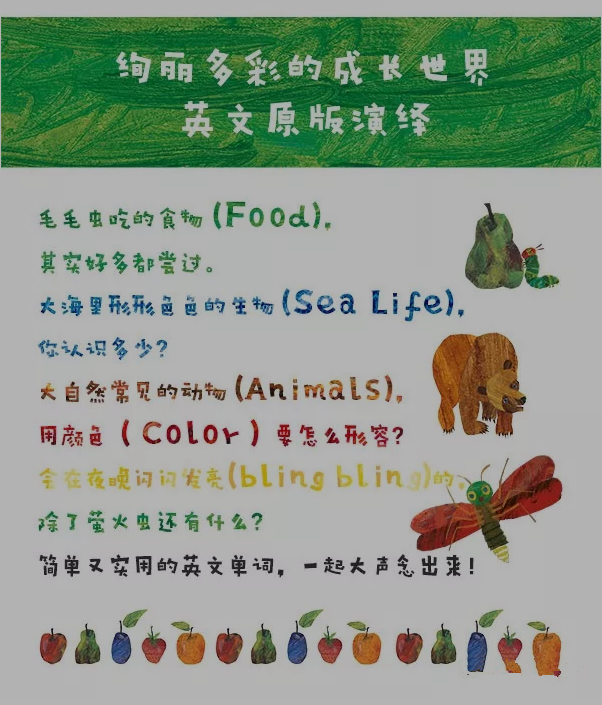 绚丽多彩的成长世界
英文原版演绎
毛毛虫吃的食物(Food),
其实好多都尝过。
大海里形形色色的生物(Sea Life),
你认识多少?
大自然常见的动物(Animals),
用颜色(Color)要怎么形容?
会在夜晚闪闪发亮(bling bling)的,
除了萤火虫还有什么?
简单又实用的英文单词,一起大声念出来!